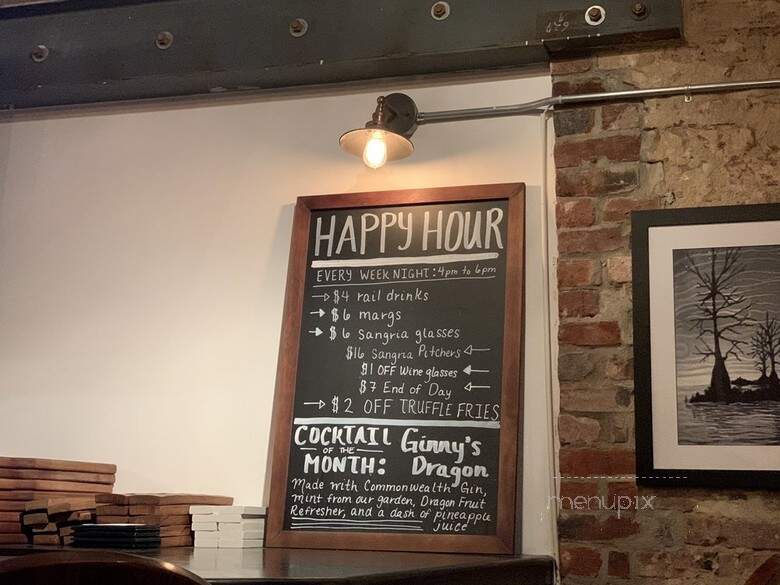 HAPPY HOUR
EVERY WEEK NIGHT: 4pm to 6pm
→ $4 rail drinks
→ $6 margs
→ $6 Sangria glasses
$16 Sangria Pitchers ←
$1 OFF Wine glasses ←
$7 End of Day ←
→ $2 OFF TRUFFLE FRIES
COCKTAIL OF THE MONTH: Ginny's Dragon
Made with Commonwealth Gin,
mint from our garden, Dragon Fruit
Refresher, and a dash of pineapple
juice
menupix